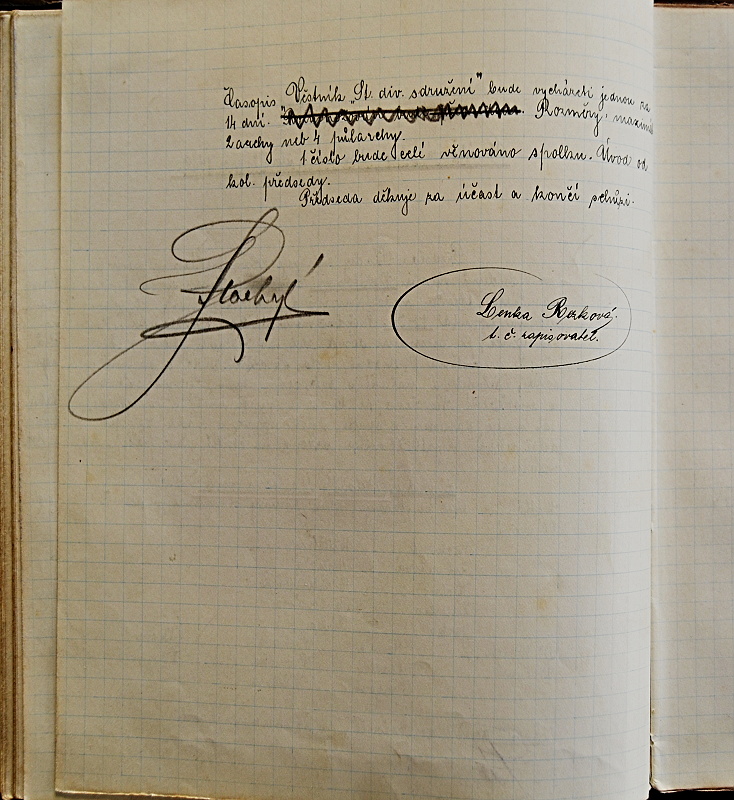 Časopis Věstník „St. div. sdružení" bude vycházeti jednou za
14 dní. Rozměry, maxim
2 archy neb 4 půlarchy.
1 číslo bude celé věnováno spolku. Úvod od
kol. předsedy.
Předseda děkuje za účast a končí schůzi.
Lenka Rezková.
t. č. zapisovatel.